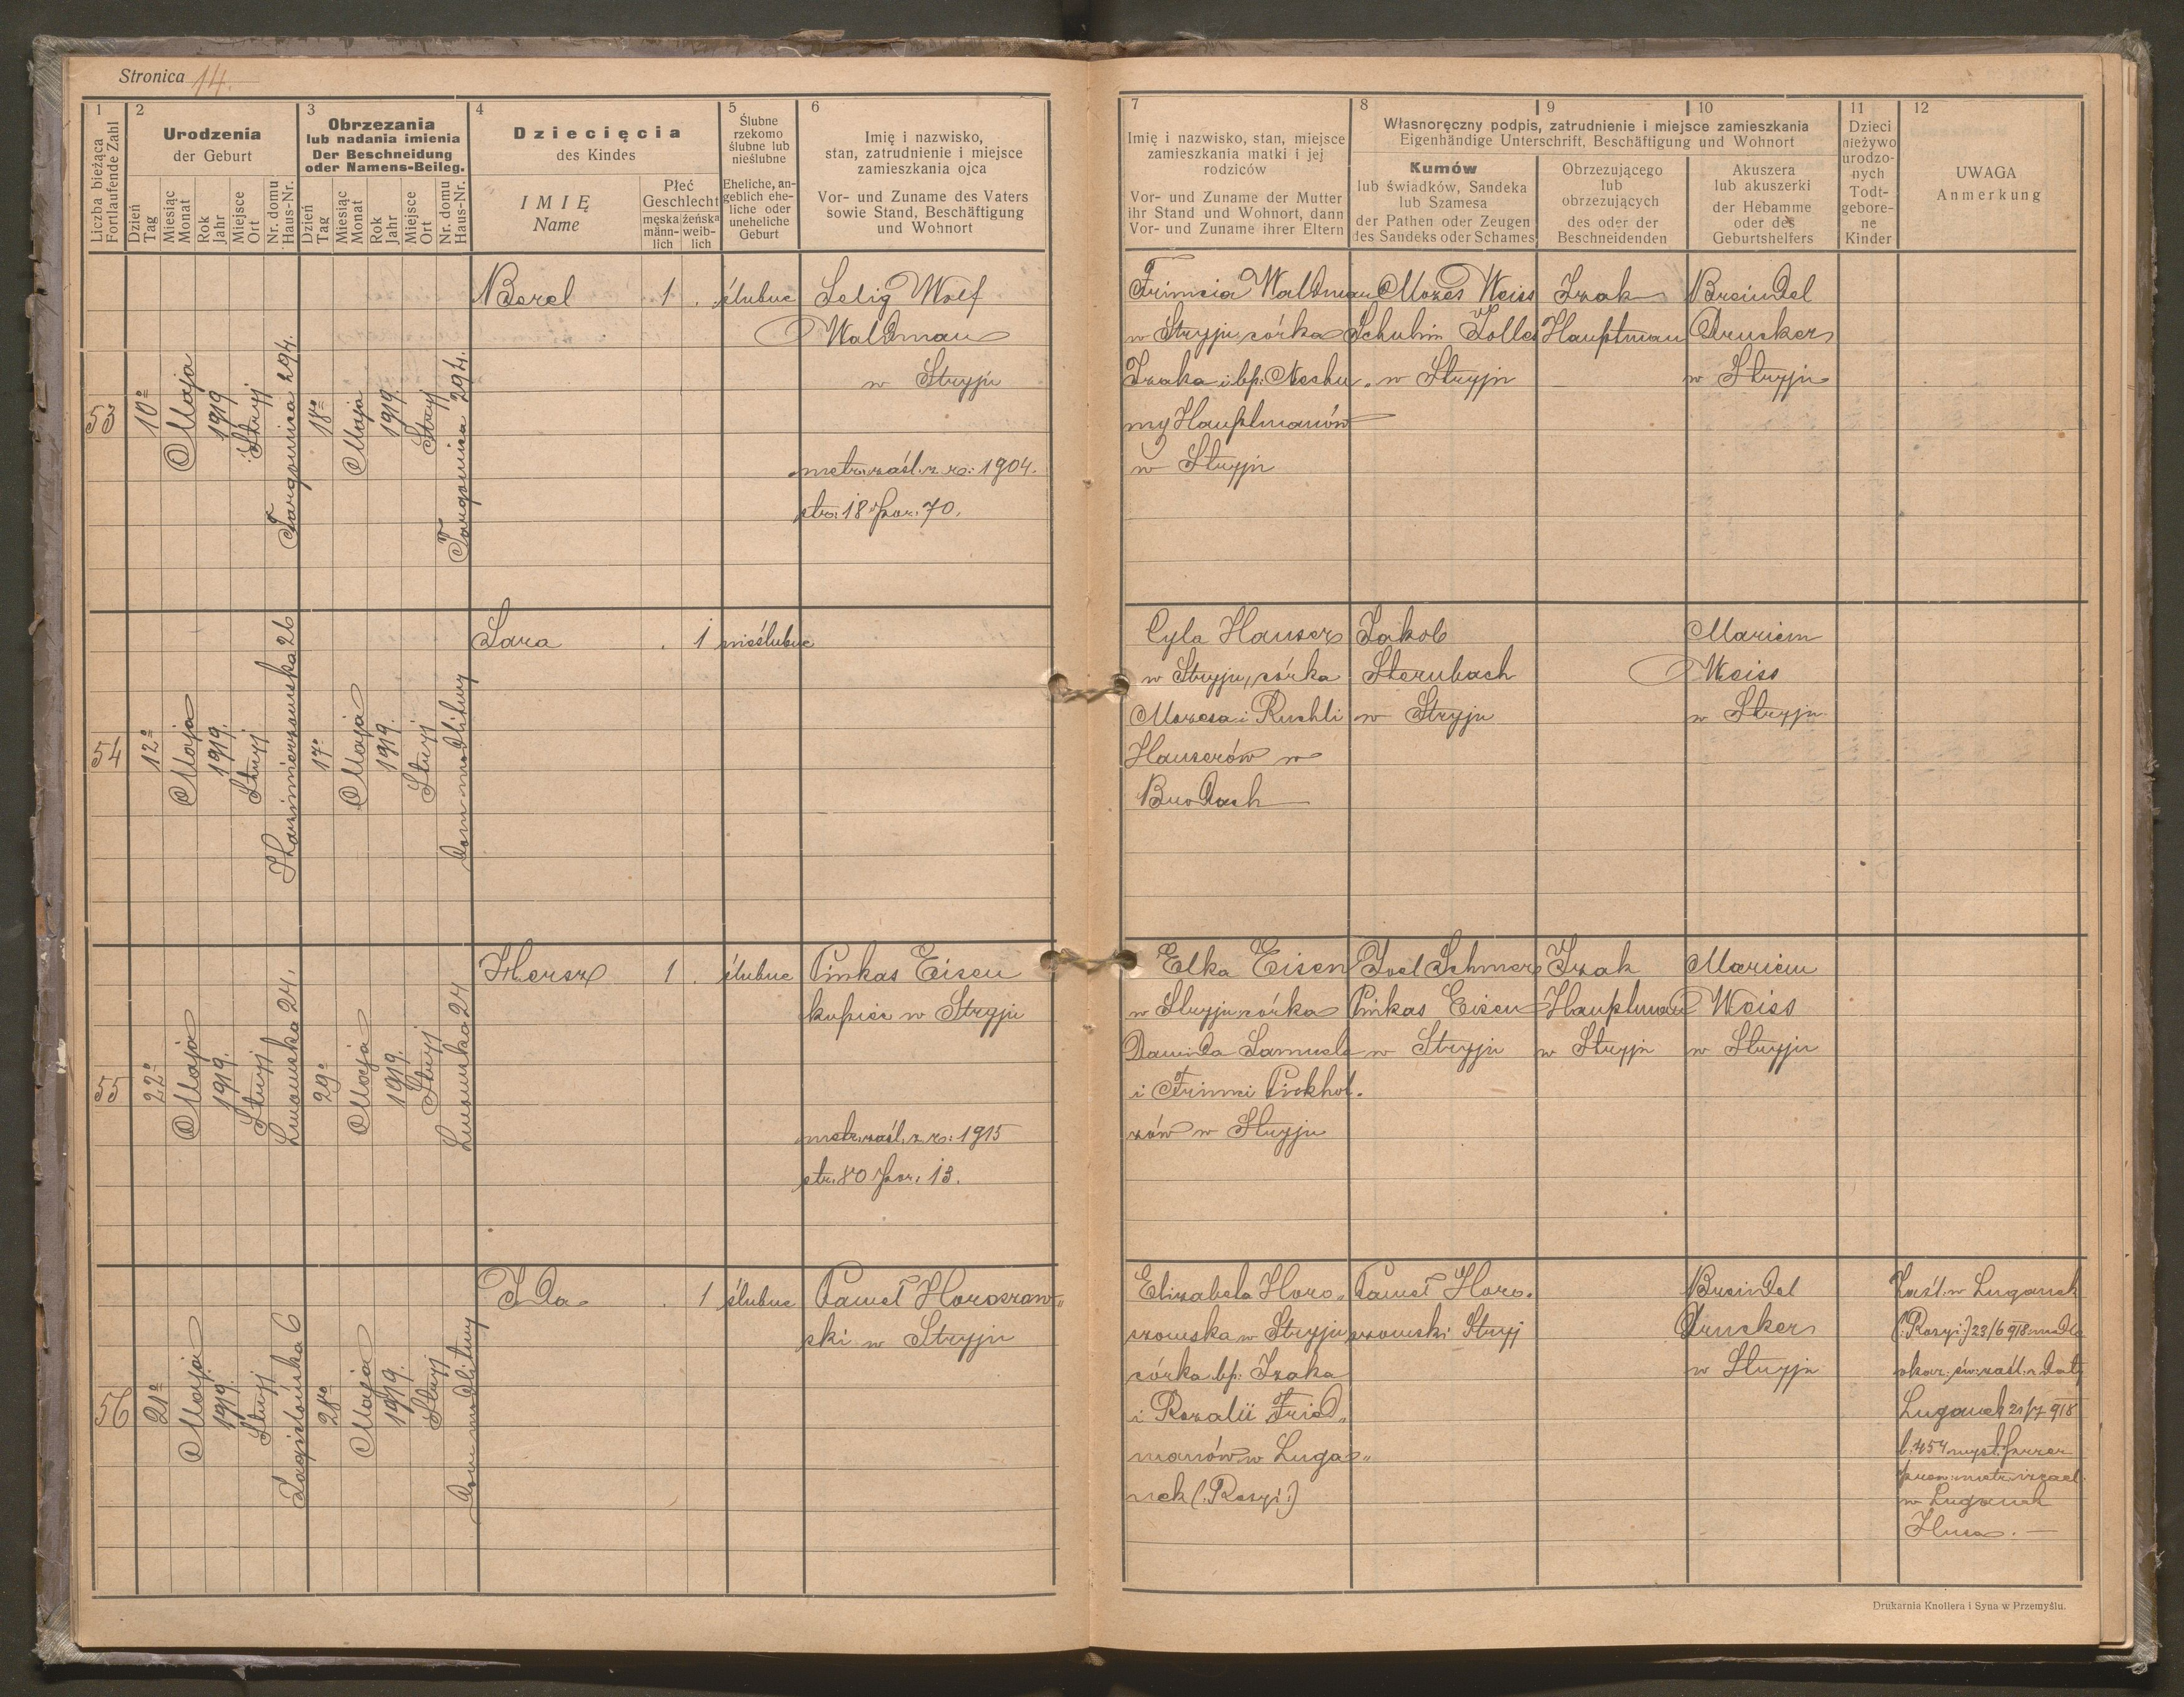 Stronica 14.
1
Liczba bieżąca
Fortlaufende Zahl
2
Urodzenia
der Geburt
Dzień
Tag
Miesiąc
Monat
Rok
Jahr
Miejsce
Ort
Nr. domu
Haus-Nr.
3
Obrzezania
lub nadania imienia
Der Beschneidung
oder Namens-Beileg.
Dzień
Tag
Miesiąc
Monat
Rok
Jahr
Miejsce
Ort
Nr. domu
Haus-Nr.
4
Dziecięcia
des Kindes
IMIĘ
Name
Płeć
Geschlecht
męska
männ-
lich
żeńska
weib-
lich
5
Ślubne
rzekomo
ślubne lub
nieślubne
Eheliche, an-
geblich ehe-
liche oder
uneheliche
Geburt
6
Imię i nazwisko,
stan, zatrudnienie i miejsce
zamieszkania ojca
Vor- und Zuname des Vaters
sowie Stand, Beschäftigung
und Wohnort
7
Imię i nazwisko, stan, miejsce
zamieszkania matki i jej
rodziców
Vor- und Zuname der Mutter
ihr Stand und Wohnort, dann
Vor- und Zuname ihrer Eltern
8
9
10
Własnoręczny podpis, zatrudnienie i miejsce zamieszkania
Eigenhändige Unterschrift, Beschäftigung und Wohnort
Kumów
lub świadków, Sandeka
lub Szamesa
der Pathen oder Zeugen
des Sandeks oder Schames
Obrzezującego
lub
obrzezujących
des oder der
Beschneidenden
Akuszera
lub akuszerki
der Hebamme
oder des
Geburtshelfers
11
Dzieci
nieżywo
urodzo-
nych
Todt-
gebore-
ne
Kinder
12
UWAGA
Anmerkung
53
10º
Maja
1919
Stryj
Targowica 294.
18º
Maja
1919
Stryj
Targowica 294.
Berel
1
.
ślubne
Selig Wolf
Waldman
w Stryju
metr. zaśl. z r: 1904.
str: 18 poz. 70.
Frimcia Waldman
w Stryju, córka
Izaka i bp: Nechu„
my Hauptmanów
w Stryju
Mozes Weiss
Schulim Tolles
w Stryju
Izak
Hauptman
Breindel
Drucker
w Stryju
54
12º
Maja
1919.
Stryj
Kazimierzowska 26
17º
Maja
1919.
Stryj
dom modlitwy
Sara
.
1
nieślubne
Cyla Hauser
w Stryju, córka
Mozesa i Ruchli
Hauserów w
Brodach
Jakob
Sternbach
w Stryju
Mariem
Weiss
w Stryju
55
22º
Maja
1919.
Stryj
Lwowska 24.
29º
Maja
1919.
Stryj
Lwowska 24
Hersz
1
.
ślubne
Pinkas Eisen
kupiec w Stryju
metr. zaśl. z r: 1915
str. 80 poz. 13.
Elka Eisen
w Stryju córka
Dawida Samuela
i Frimci Pickhol.
zów w Stryju
Joel Schmer
Pinkas Eisen
w Stryju
Izak
Hauptman
w Stryju
Mariem
Weiss
w Stryju
56
21º
Maja
1919.
Stryj
Jagielońska 6
28º
Maja
1919.
Stryj
dom modlitwy
Ida
.
1
ślubne
Paweł Horoszow„
ski w Stryju
Elizabeta Horo„
szowska w Stryju
córka bp: Izaka
i Rozalii Fried„
manów wŁuga„
nek (:Rosyi:)
Paweł Horo.
szowski Stryj
Breindel
Drucker
w Stryju
Zaśl. w Ługanek
(:Rosyi:) 23/6 918 
okaz. św: zaśl. z daty
Ługanek 21/7 918
l: 454 wyst. przez
prow: metr. izrael.
w Ługanek
Drukarnia Knollera i Syna w Przemyślu.